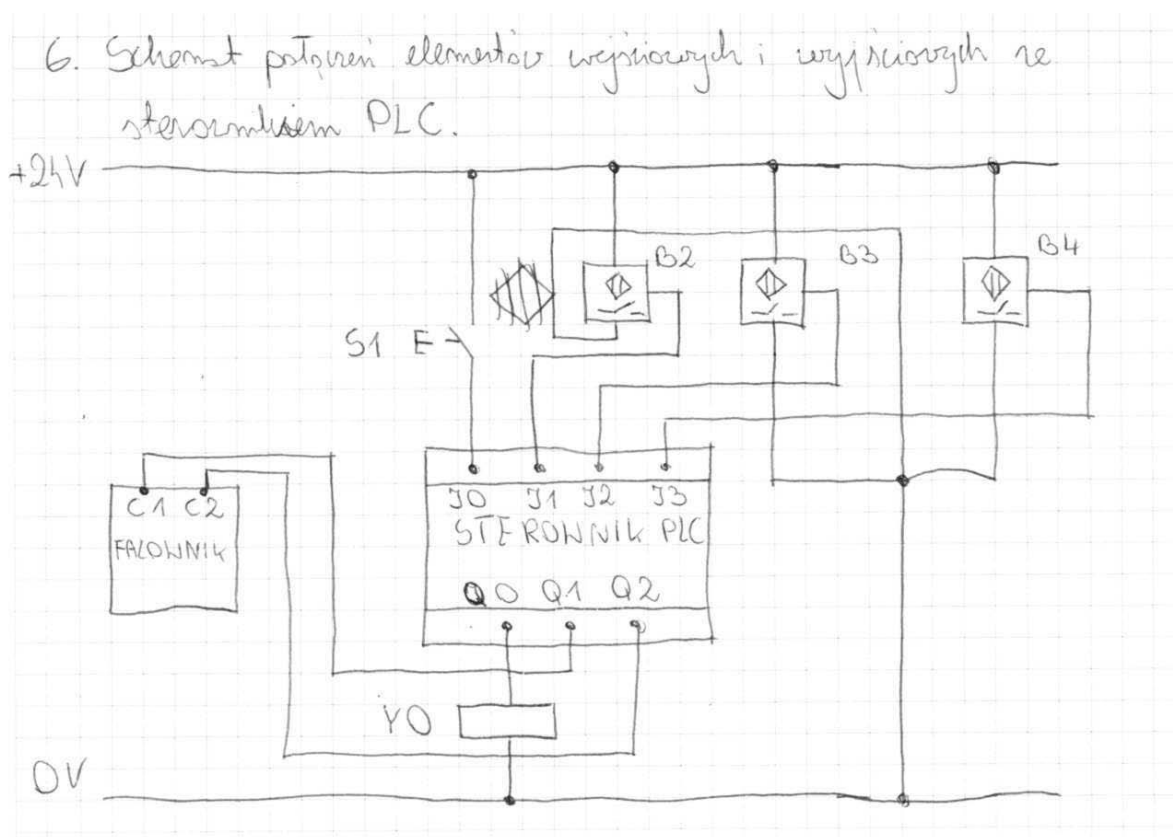 6. Schemat połączeń elementów wejściowych i wyjściowych ze
sterownikiem PLC.
+24V
B2
B3
B4
S1 E
C1 C2
FALOWNIK
I0 I1 I2 I3
STEROWNIK PLC
Q0 Q1 Q2
Y0
0V